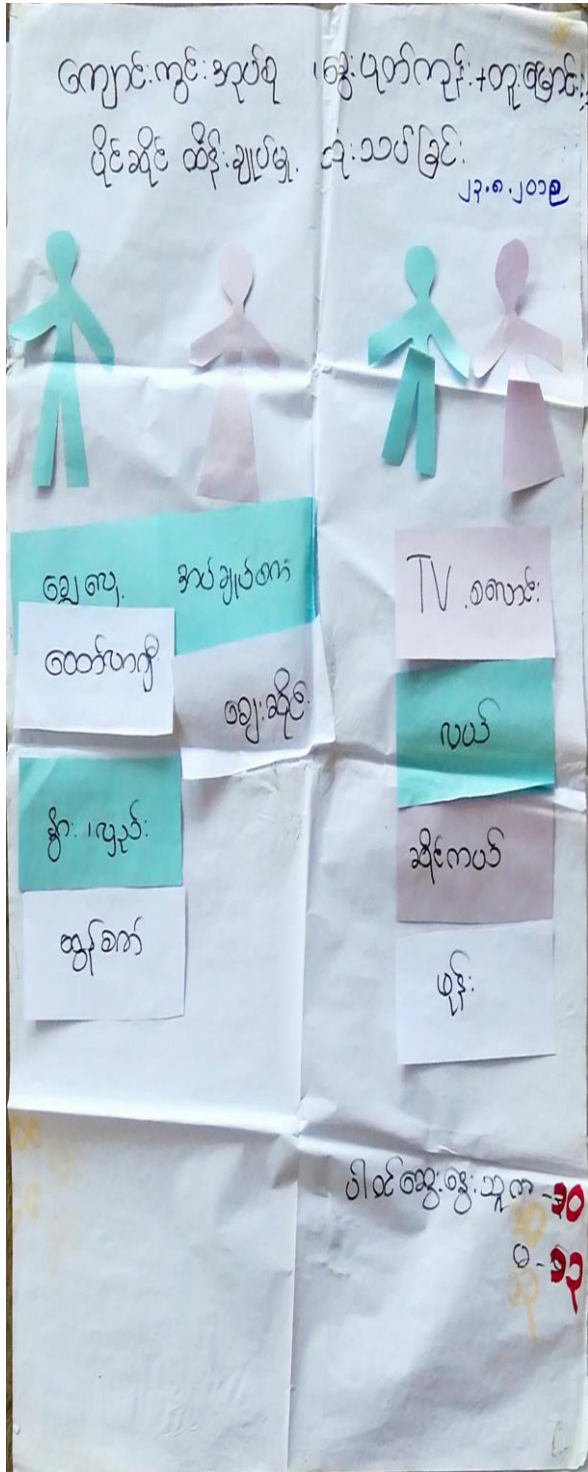 ကျောင်းကွင်းအုပ်စု ၊ နွေးပုတ်ကုန်း+တူးမြောင်း
ပိုင်ဆိုင် ထိန်းချုပ်မှု့ သုံးသပ်ခြင်း
၂၃.၈.၂၀၁၉
လှေလှော် အပ်ချုပ်စက်
ထော်လာဂျီ
ဈေးဆိုင်
နွား ၊ လှည်း
ထွန်စက်
TV . စလောင်း
လယ်
ဆိုင်ကယ်
ဖုန်း
ပါဝင်ဆွေးနွေးသူ က - ၃၀
မ - ၁၃